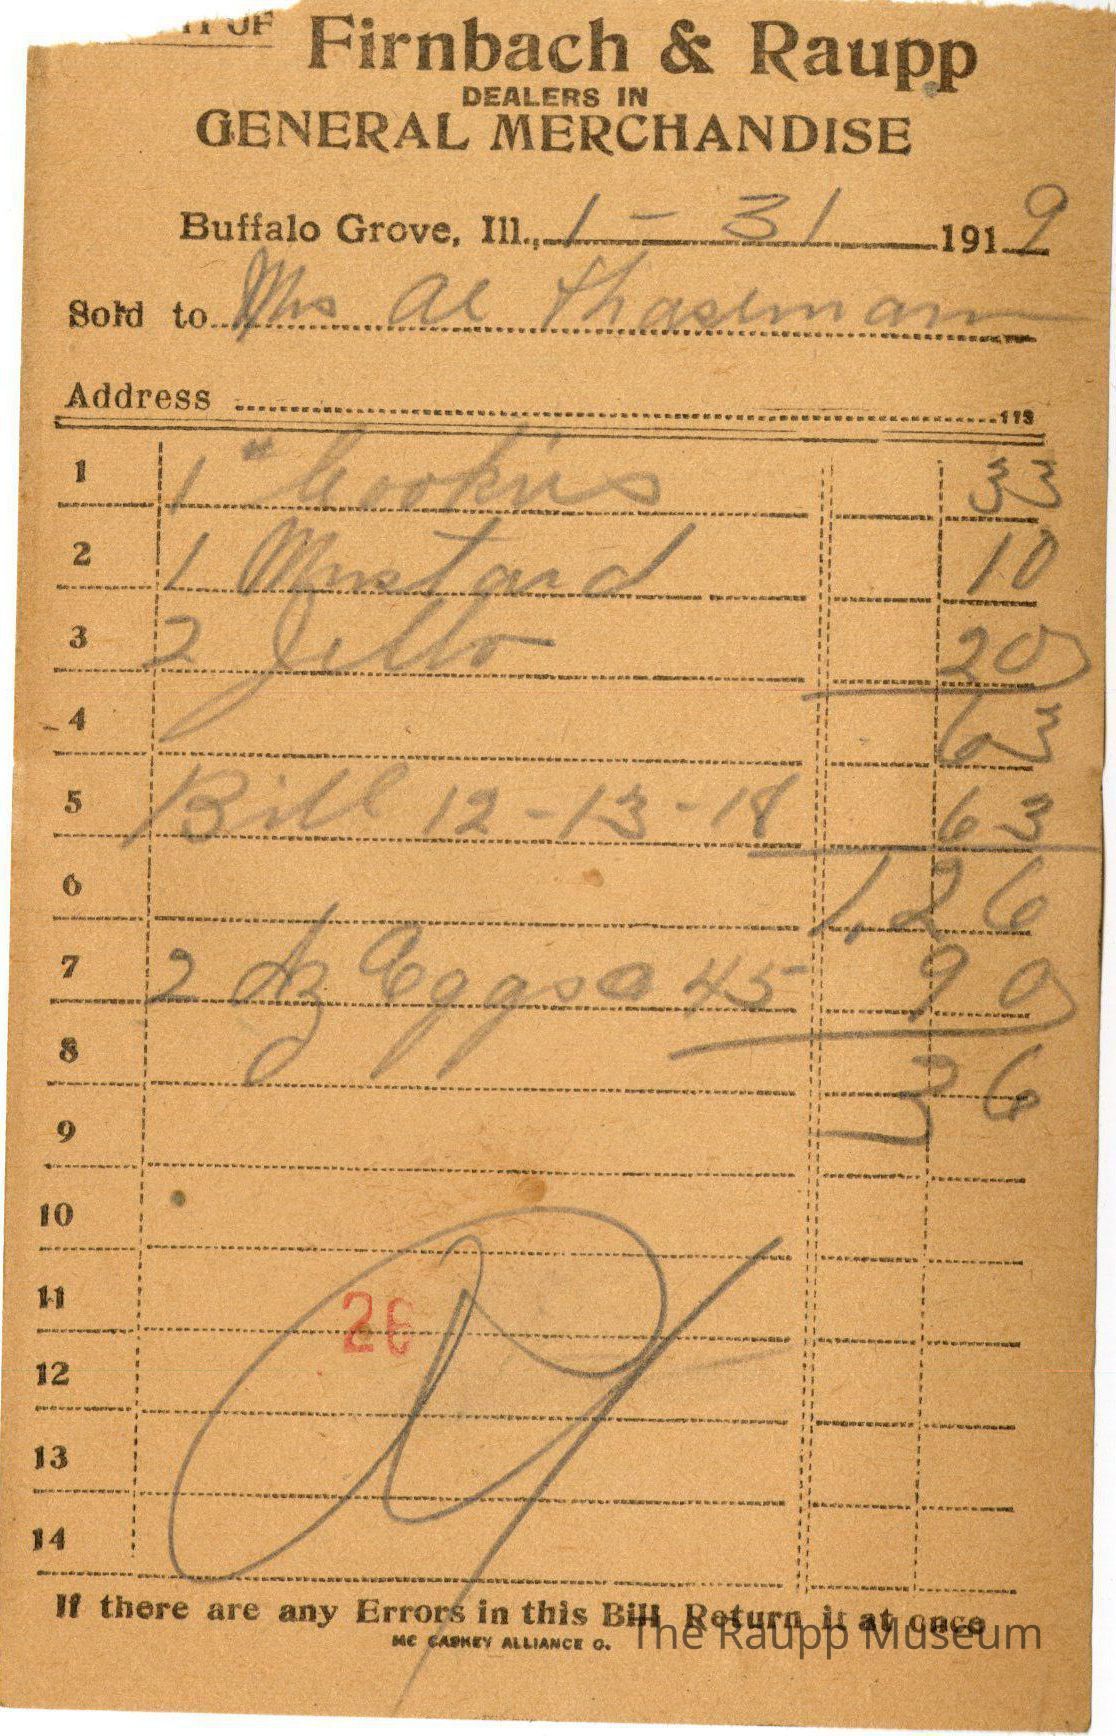 OF
Firnbach & Raupp
DEALERS IN
GENERAL MERCHANDISE
Buffalo Grove, Ill., 1 - 31 1919
Sold to Mrs Al Thasemann
Address
113
1 1 # Cookies 33
2 1 Mustard 10
3 2 Jello 20
4 63
5 Bill 12-13-18 63
6 1,26
7 2 dz Eggs @ 45 90
8 36
9
10
11
26
12
13
14
If there are any Errors in this Bill Return it at once
MC CASKEY ALLIANCE O.
The Raupp Museum